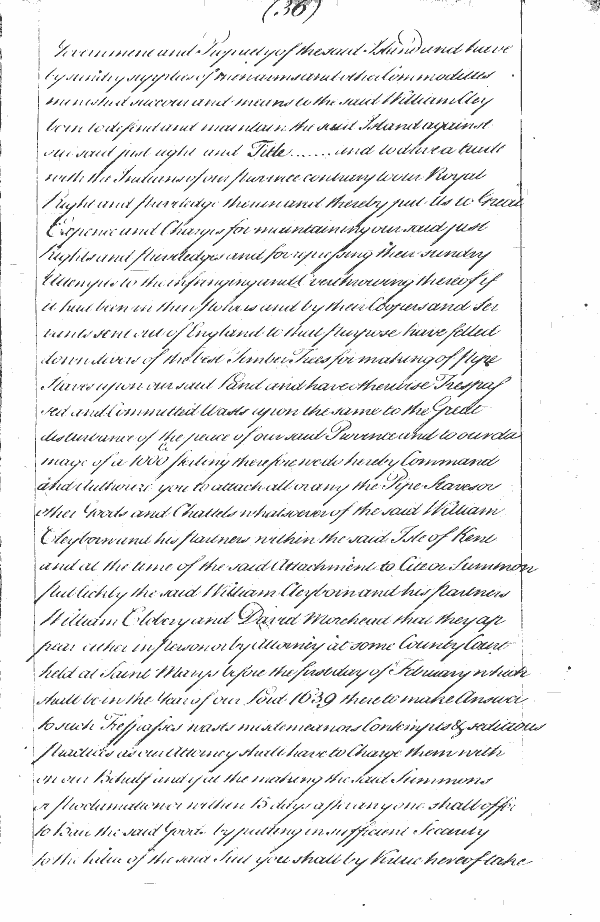 (36)
Government and Propriety of the said Island and have
by sundry supplies of men arms and other Commodities
ministred succour and means to the said William Cley
born to defend and maintain the said Island against
our said just right and Title ...... and to drive a trade
with the Indians of our province contrary to our Royal
Right and priviledge therein and thereby put Us to Great
Expence and Charges for maintaining our said just
Rights and priviledges and for repressing their sundry
Attempts to the infringing and Overthrowing thereof if
it had been in their powers and by their Coopers and Ser
vants sent out of England to that purpose have felled
down divers of the best Timber Trees for making of Pipe
Staves upon our said Land and have otherwise Trespas
sed and Committed Wasts upon the same to the Great
disturbance of the peace of our said Province and to our da
mage of a 1000 £ sterling therefore we do hereby Command
and Authorize you to attach all or any the Pipe Staves or
other Goods and Chattels whatsoever of the said William
Cleyborn and his partners within the said Isle of Kent
and at the time of the said Attachment to Cite or Summon
publickly the said William Cleyborn and his partners
William Clobery and David Morehead that they ap
pear either in person or by Attorney at some County Court
held at Saint Marys before the first day of February which
shall be in the Year of our Lord 1639 there to make Answer
to such Trespasses wasts misdemeanors Contempts & seditious
Practices as our Attorney shall have to Charge them with
on our Behalf and if at the making the said Summons
or proclamation or within 15 days after any one shall offer
to Bail the said Goods by putting in sufficient Security
to the value of the said Suit you shall by Virtue hereof take